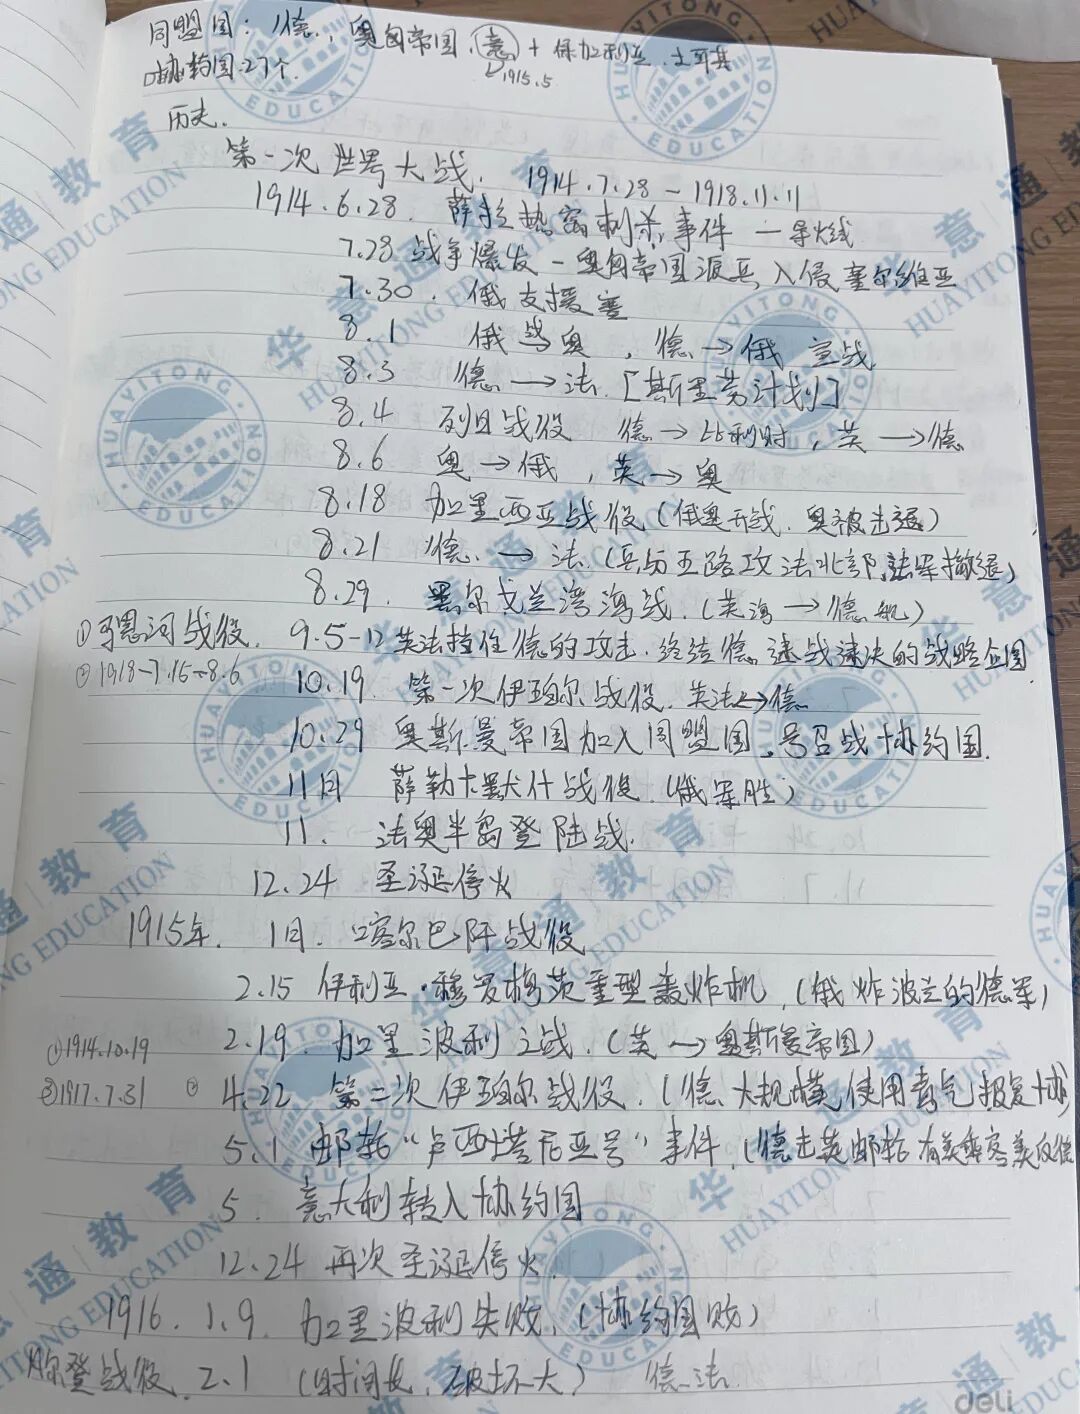 同盟国：德，奥匈帝国，意 + 保加利亚、土耳其
1915.5
协约国：27个.
历史.
第一次世界大战. 1914.7.28－1918.11.11
1914.6.28. 萨拉热窝刺杀事件 — 导火线
7.28 战争爆发 - 奥匈帝国派兵入侵塞尔维亚
7.30. 俄支援塞
8.1 俄与奥，德→俄 宣战
8.3 德 → 法.［斯里芬计划］
8.4 列日战役 德→比利时，英→德
8.6 奥→俄，英→奥
8.18 加里西亚战役（俄奥开战.奥被击退）
8.21 德 → 法.（兵分五路攻法北部,法军撤退）
8.29. 黑尔戈兰湾海战.（英海→德舰）
①马恩河战役. 9.5-12英法挡住德的攻击.终结德速战速决的战略企图
②1918-7.15-8.6
10.19. 第一次伊珀尔战役. 英法↔德
10.29 奥斯曼帝国加入同盟国,号召战协约国.
11月 萨勒卡默什战役.（俄军胜）
11. 法奥半岛登陆战.
12.24 圣诞停火
1915年. 1月. 喀尔巴阡战役
2.15 伊利亚·穆罗梅茨重型轰炸机.（俄炸波兰的德军）
①1914.10.19
2.19. 加里波利之战.（英→奥斯曼帝国）
③1917.7.31 ② 4.22 第二次伊珀尔战役.（德大规模使用毒气报复协）
5.1 邮轮“卢西塔尼亚号”事件.（德击英邮轮 有美乘客美反德
5. 意大利转入协约国
12.24 再次圣诞停火.
1916. 1.9. 加里波利失败.（协约国败）
凡尔登战役. 2.1（时间长，破坏大） 德 法.
deli
华意通教育
HUAYITONG EDUCATION